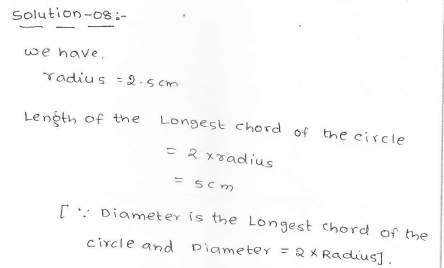 Solution-08:-
we have,
radius = 2.5cm
Length of the Longest chord of the circle
= 2 x radius
= 5cm
[ ∵ Diameter is the Longest chord of the
circle and Diameter = 2 x Radius].